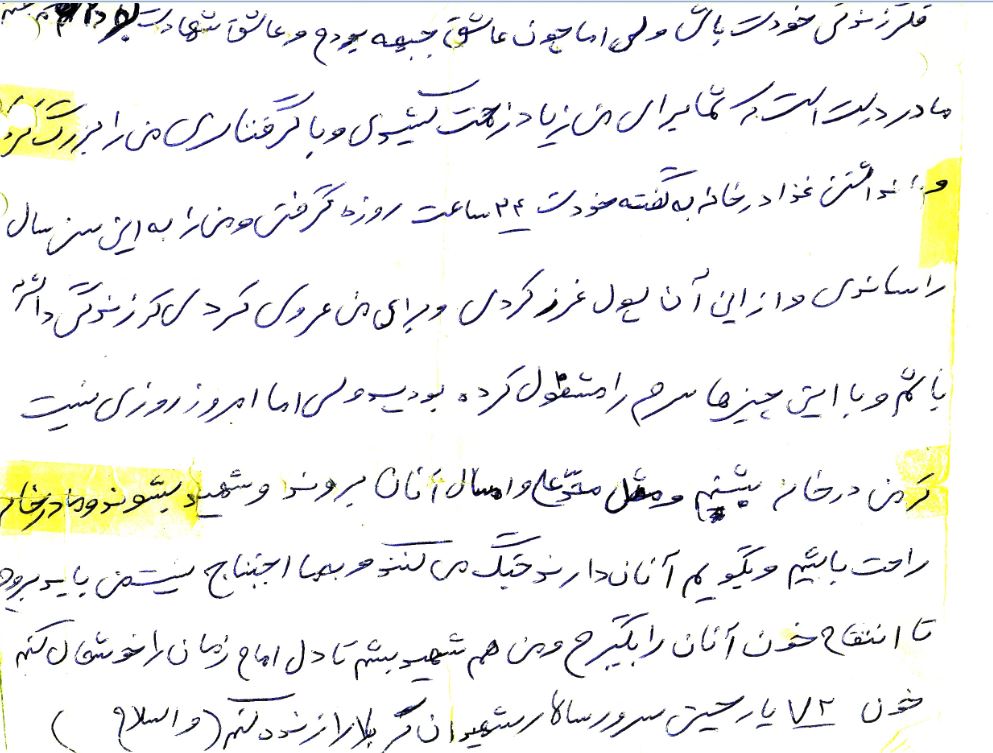 فکر زندگی خودت باش ولی اما چون عاشق جبهه بودم و عاشق شهادت
مادر درست است که شما برای من زیاد زحمت کشیدی و با گرفتاری من را بزرگ کرد
و با نداشتن غذا در خانه به گفته خودت ۲۴ ساعت روزه گرفتی و من را به این سن سال
راساندی و از این آن پول غرز کردی و برای من عروسی کردی که زندگی داشته
باشم و با این چیزها سرم را مشقول کرده بودید ولی اما امروز روزی نیست
که من در خانه بشینم و مثل و امسال آنان بروند و شهید بشوند و ما در خانه
راحت باشیم و بگویم آنان دارند جنگ می کنند و بما اجتناج نیست من باید بروم
تا انتقام خون آنان را بگیرم و من هم شهید بشم تا دل امام زمان را خوشحال کنم
خون ۷۲ یار حسین سرور سالار شهیدان کربلا را زنده کنم (والسلام)